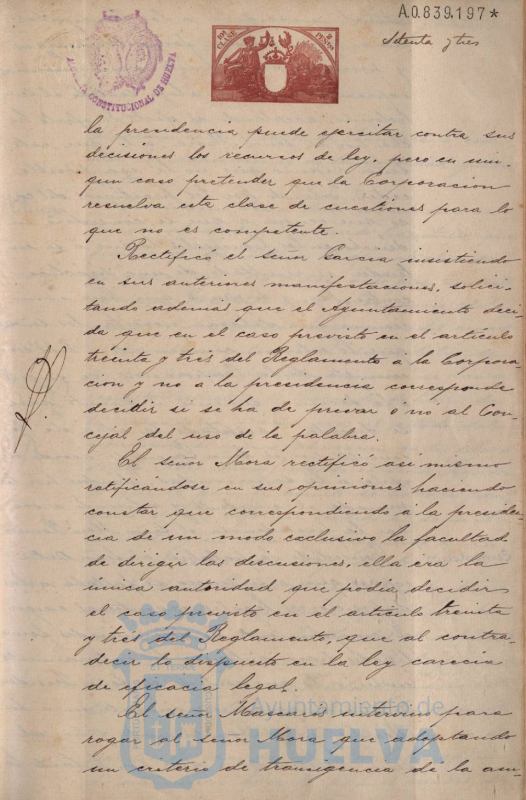 A.0.839.197*
Setenta y tres
AYUNTAMIENTO CONSTITUCIONAL DE HUELVA
10ª CLASE
2 PESETAS
la presidencia puede ejercitar contra sus
decisiones los recursos de ley, pero en nin-
gun caso pretender que la Corporacion
resuelva esta clase de cuestiones para lo
que no es competente.
Rectificó el señor Garcia insistiendo
en sus anteriores manifestaciones, solici-
tando además que el Ayuntamiento deci-
da que en el caso previsto en el articulo
treinta y tres del Reglamento á la Corpora-
cion y no a la presidencia corresponde
decidir si se ha de privar ó no al Con-
cejal del uso de la palabra.
El señor Mora rectificó asi mismo
ratificándose en sus opiniones haciendo
constar que correspondiendo á la presiden-
cia de un modo exclusivo la facultad
de dirigir las discusiones, ella era la
única autoridad que podia decidir
el caso previsto en el articulo treinta
y tres del Reglamento, que al contra-
decir lo dispuesto en la ley carecia
de eficacia legal.
El señor Mascarós intervino para
rogar al señor Mora que adoptando
un criterio de transigencia de la am-
Ayuntamiento de
HUELVA